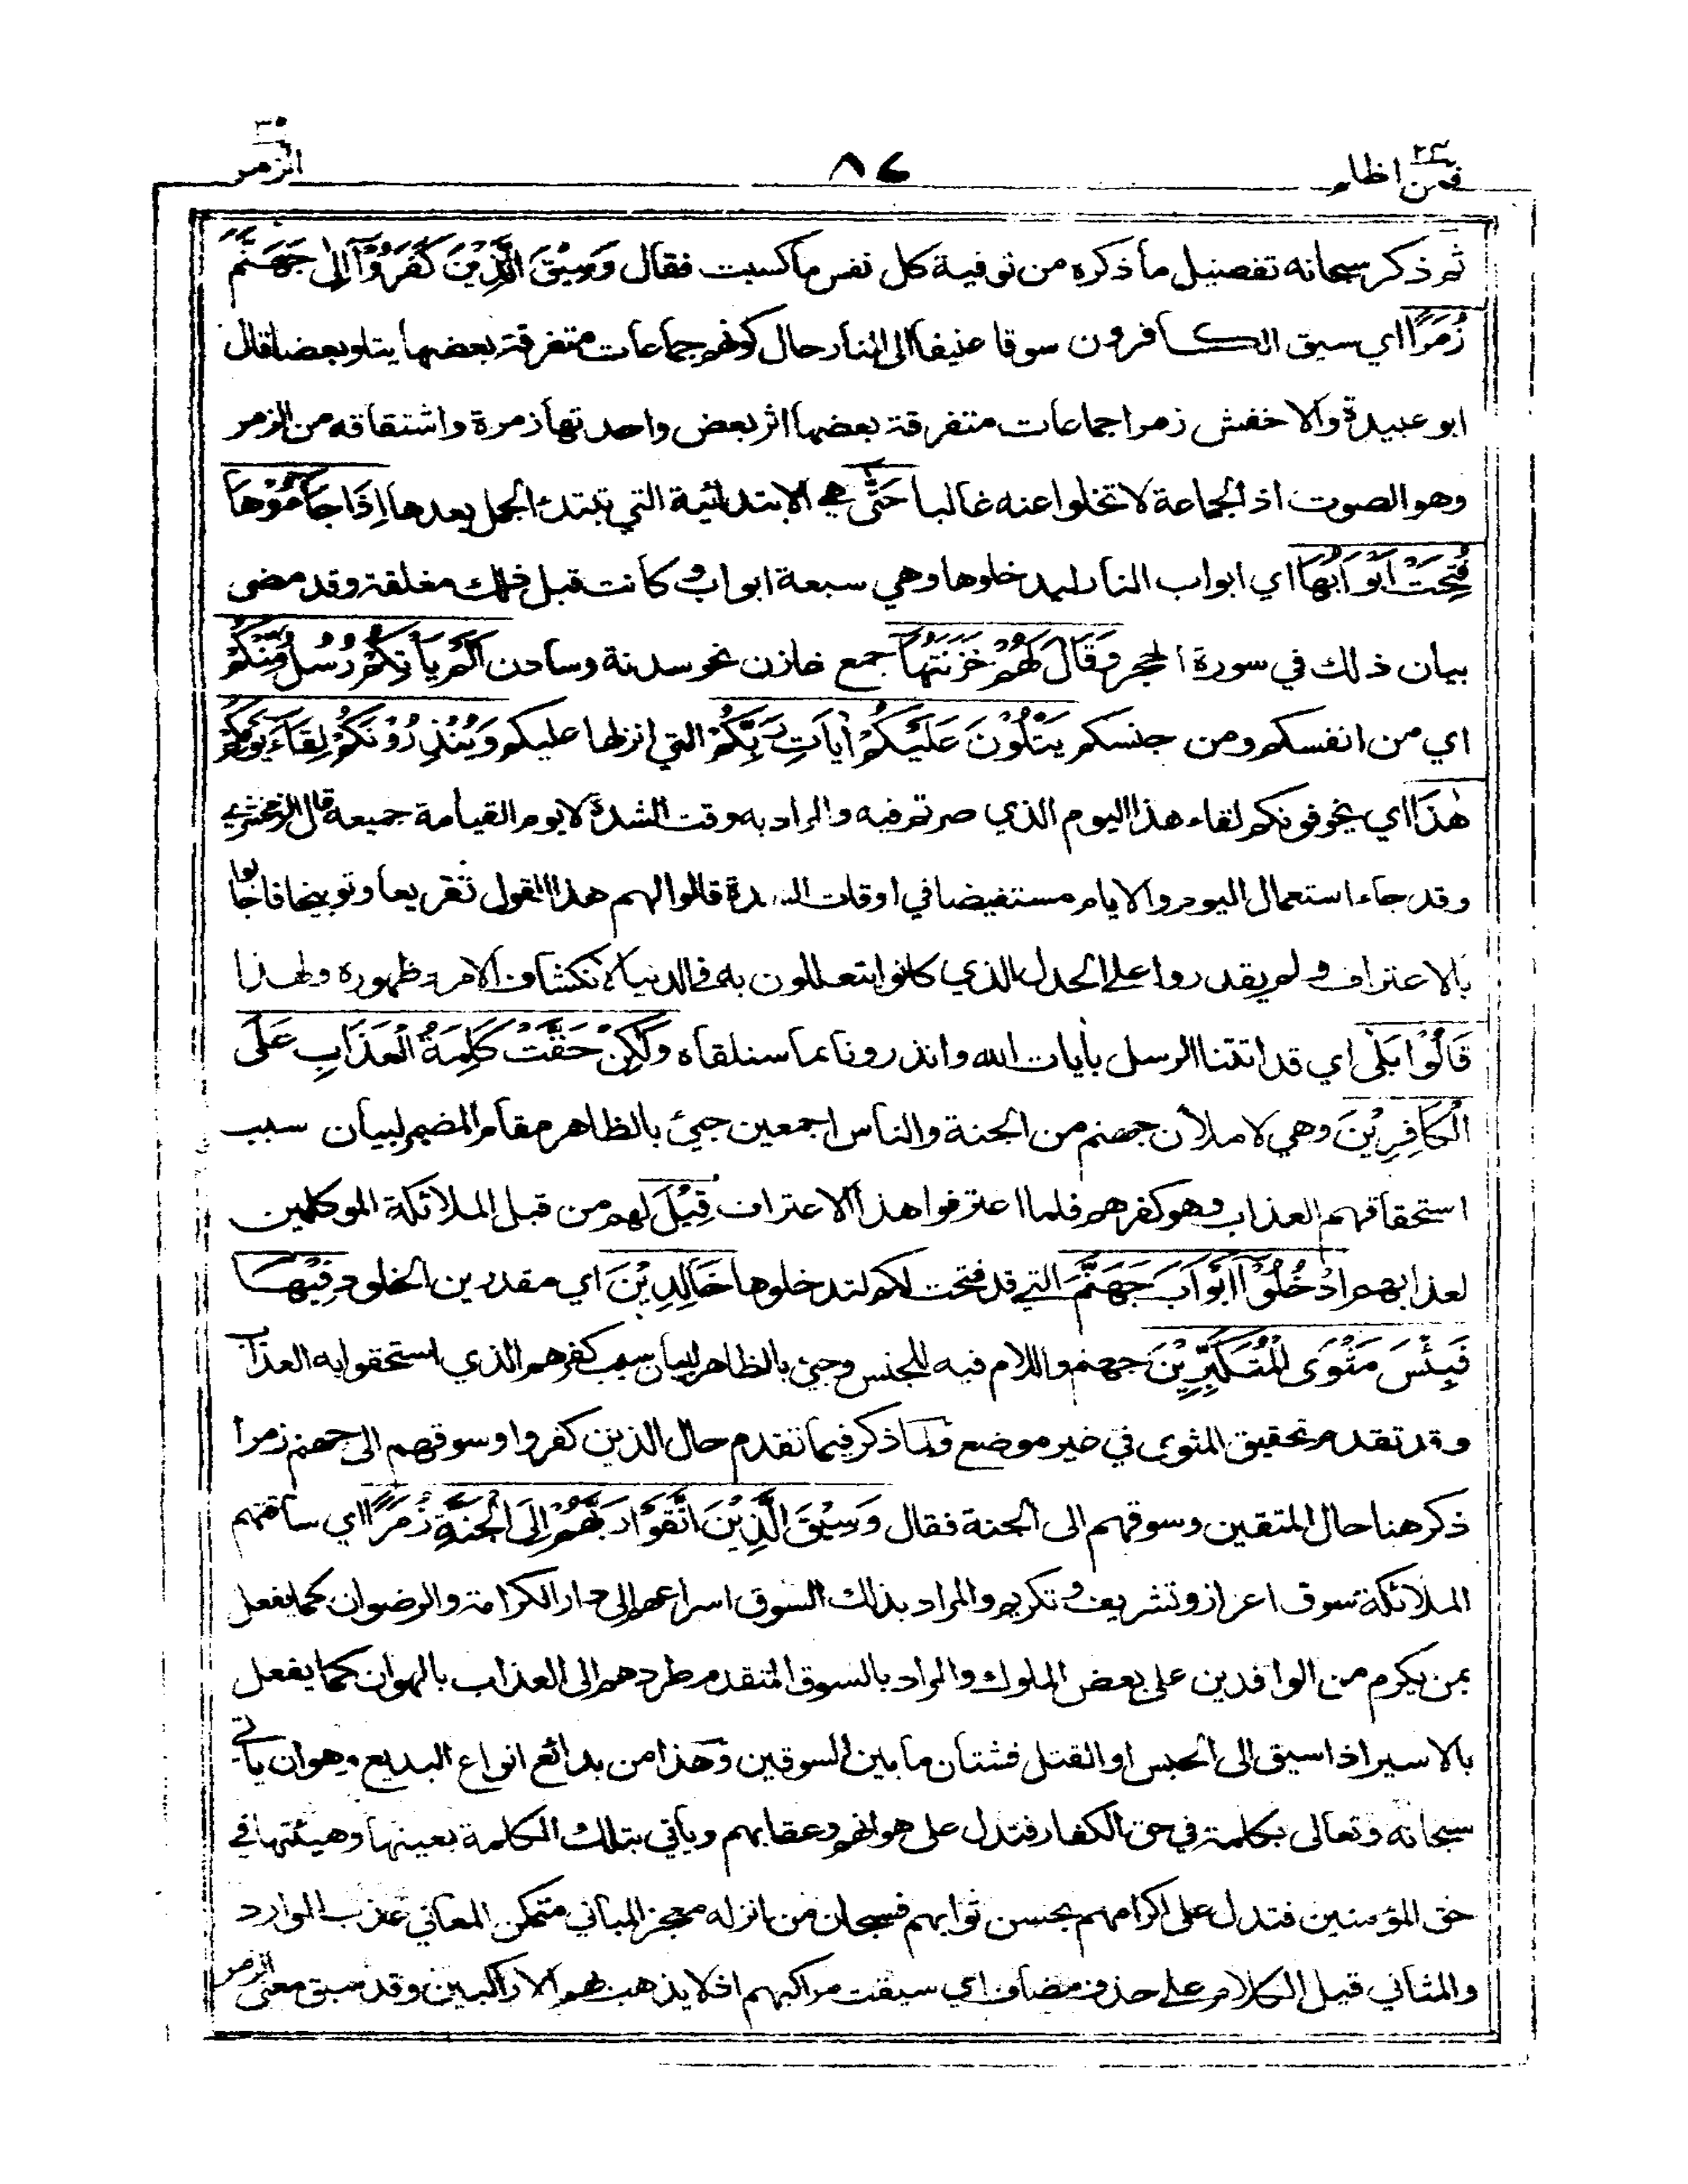 فمن اظلم ٢٤
٨٦
الزمر ٣٩
ثم ذكر سبحانه تفصيل ما ذكره من توفية كل نفس ما كسبت فقال وَسِيْقَ الَّذِيْنَ كَفَرُوْآ اِلٰى جَهَنَّمَ
زُمَرًا اي سيق الكافرون سوقا عنيفا الى النار حال كونهم جماعات متفرقة بعضها يتلو بعضا قال
ابو عبيدة والاخفش زمرا جماعات متفرقة بعضها اثر بعض واحدتها زمرة واشتقاقه من الزمر
وهو الصوت اذ الجماعة لا تخلوا عنه غالبا حَتّٰى هي الابتدائية التي تبتدئ الجمل بعدها اِذَا جَآءُوْهَا
فُتِحَتْ اَبْوَابُهَا اي ابواب النار ليدخلوها وهي سبعة ابواب و كانت قبل ذلك مغلقة وقد مضى
بيان ذلك في سورة الحجر وَقَالَ لَهُمْ خَزَنَتُهَا جمع خازن نحو سدنة وسادن اَلَمْ يَأْتِكُمْ رُسُلٌ مِّنْكُمْ
اي من انفسكم ومن جنسكم يَتْلُوْنَ عَلَيْكُمْ اٰيَاتِ رَبِّكُمْ التي انزلها عليكم وَيُنْذِرُوْنَكُمْ لِقَآءَ يَوْمِكُمْ
هٰذَا اي يخوفونكم لقاء هذا اليوم الذي صرتم فيه والمراد به وقت الشدة لا يوم القيامة جميعه قال الزمخشري
وقد جاء استعمال اليوم والايام مستفيضا في اوقات الشدة قالوا لهم هذا القول تقريعا وتوبيخا فاجابوا
بالاعتراف ولم يقدروا على الجدل الذي كانوا يتعللون به في الدنيا لانكشاف الامر وظهوره ولهذا
قَالُوْا بَلٰى اي قد اتتنا الرسل بأيات الله وانذرونا بما سنلقاه وَلٰكِنْ حَقَّتْ كَلِمَةُ الْعَذَابِ عَلَى
الْكَافِرِيْنَ وهي لاملأن جهنم من الجنة والناس اجمعين جيئ بالظاهر مقام المضمر لبيان سبب
استحقاقهم العذاب وهو كفرهم فلما اعترفوا هذا الاعتراف قِيْلَ لهم من قبل الملائكة الموكلين
لعذابهم ادْخُلُوْآ اَبْوَابَ جَهَنَّمَ التي قد فتحت لكم لتدخلوها خَالِدِيْنَ اي مقدرين الخلود فِيْهَا
فَبِئْسَ مَثْوَى الْمُتَكَبِّرِيْنَ جهنم واللام فيه للجنس وجيئ بالظاهر لبيان سبب كفرهم الذي استحقوا به العذاب
وقد تقدم تحقيق المثوى في غير موضع ولما ذكر فيما تقدم حال الذين كفروا وسوقهم الى جهنم زمرا
ذكر هنا حال المتقين وسوقهم الى الجنة فقال وَسِيْقَ الَّذِيْنَ اتَّقَوْا رَبَّهُمْ اِلَى الْجَنَّةِ زُمَرًا اي ساقتهم
الملائكة سوق اعزاز وتشريف وتكريم والمراد بذلك السوق اسراعهم الى دار الكرامة والرضوان كما يفعل
بمن يكرم من الوافدين على بعض الملوك والمراد بالسوق المتقدم طردهم الى العذاب بالهوان كما يفعل
بالاسير اذا سيق الى الحبس او القتل فشتان ما بين السوقين وهذا من بدائع انواع البديع وهو ان يأتي
سبحانه وتعالى بكلمة في حق الكفار فتدل على هوانهم وعقابهم ويأتي بتلك الكلمة بعينها وهيئتها في
حق المؤمنين فتدل على اكرامهم بحسن ثوابهم فسبحان من انزله معجز المباني متمكن المعاني عذب الموارد
والمثاني قيل الكلام على حذف مضاف اي سيقت مراكبهم اذ لا يذهب بهم الا راكبين وقد سبق معنى الزمر